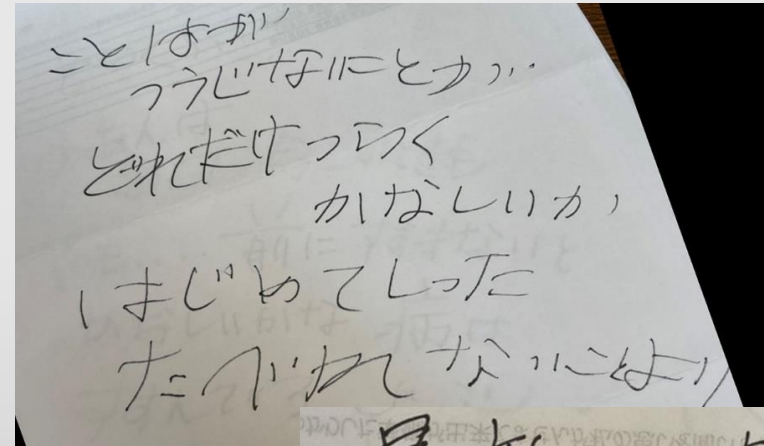 ことばが
つうじないことが...
どれだけつらく
かなしいか
はじめてしった
たべれないことより